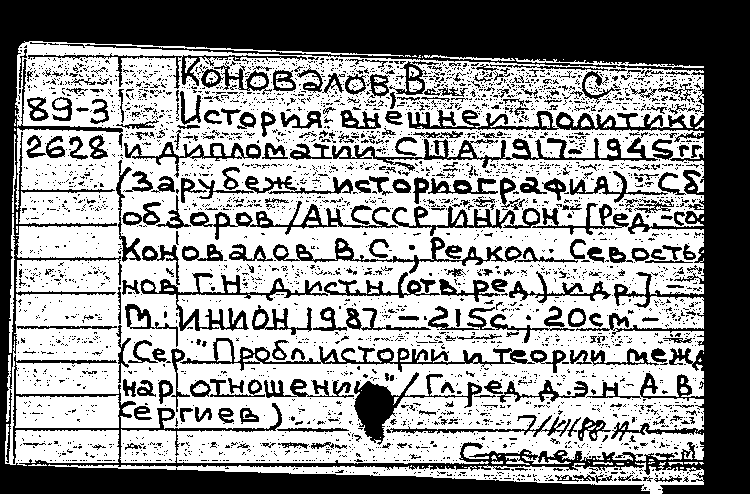 Коновалов, В С
89-3 История внешней политики
2628 и дипломатии США, 1917-1945 гг.
(Зарубеж. историография) Сб
обзоров / АН СССР, ИНИОН; [Ред.-сос
Коновалов В.С.; Редкол.: Севостья
нов Г.Н. д.ист.н. (отв. ред.) и др.] –
М.: ИНИОН, 1987. – 215с.; 20см. –
(Сер. "Пробл. истории и теории межд
нар. отношений" / Гл. ред. д.э.н А.В
Сергиев).
См. след. карт.